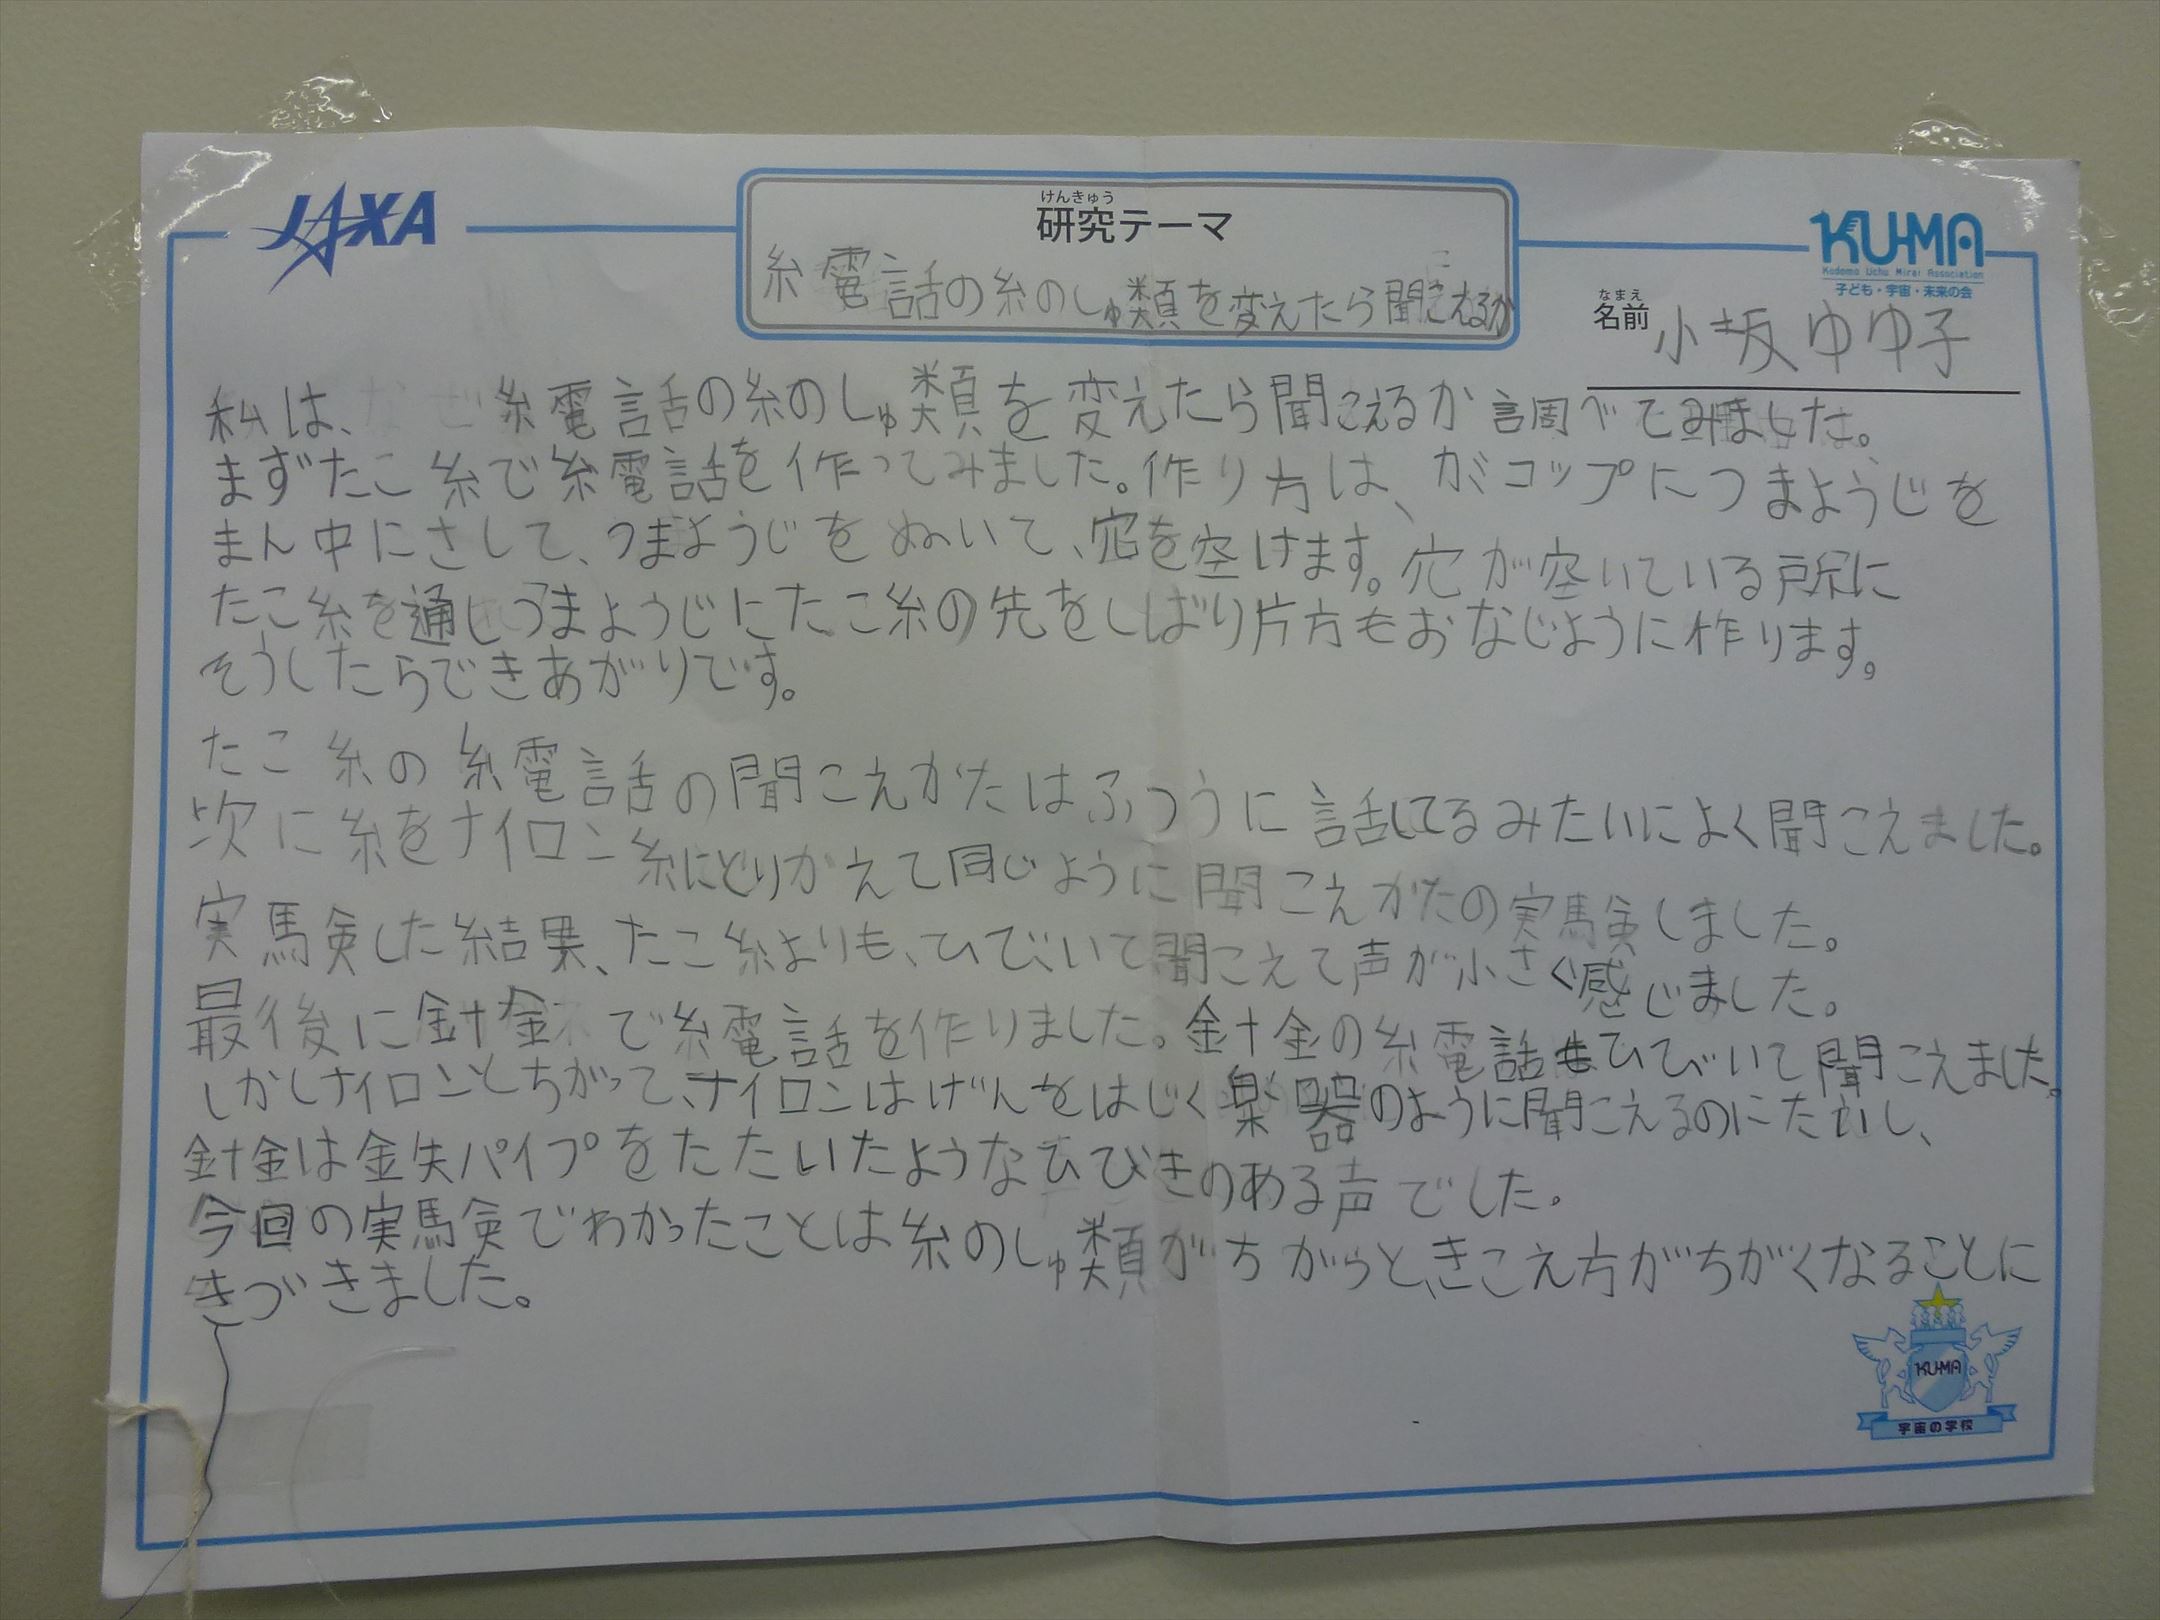 JAXA
けんきゅう
研究テーマ
糸電話の糸のしゅ類を変えたら聞こえるか
KU-MA
Kodomo Uchu Mirai Association
子ども・宇宙・未来の会
なまえ
名前 小坂ゆゆ子
私は、糸電話の糸のしゅ類を変えたら聞こえるか調べてみました。
まずたこ糸で糸電話を作ってみました。作り方は、かミコップにつまようじを
まん中にさして、つまようじをぬいて、穴を空けます。穴が空いている所に
たこ糸を通しつまようじにたこ糸の先をしばり片方もおなじように作ります。
そうしたらできあがりです。
たこ糸の糸電話の聞こえかたはふつうに話してるみたいによく聞こえました。
次に糸をナイロン糸にとりかえて同じように聞こえかたの実験しました。
実験した結果、たこ糸よりも、ひびいて聞こえて声が小さく感じました。
最後に針金で糸電話を作りました。針金の糸電話もひびいて聞こえました。
しかしナイロンとちがって、ナイロンはげんをはじく楽器のように聞こえるのにたいし、
針金は金失パイプをたたいたようなひびきのある声でした。
今回の実験でわかったことは糸のしゅ類がちがうと、きこえ方がちがくなることに
きづきました。
KU-MA
宇宙の学校